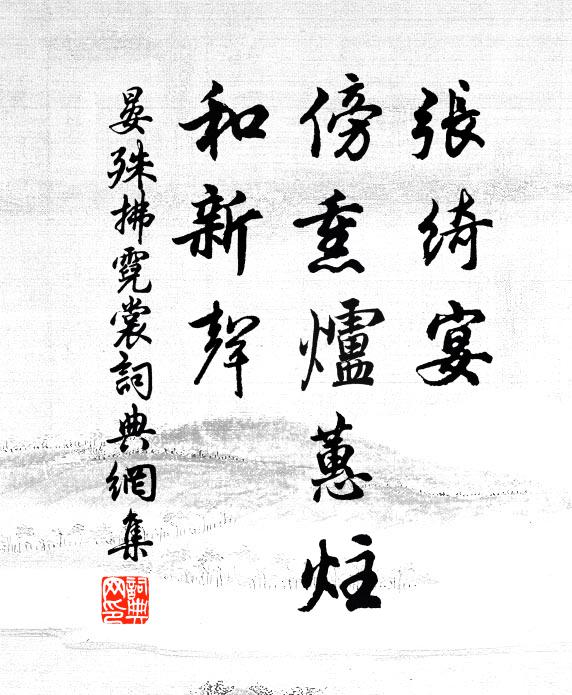 張綺宴
傍熏爐蕙炷
和新聲
晏殊拂霓裳詞典網集
詞典網印